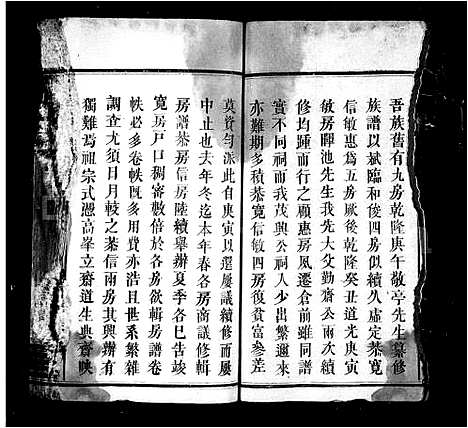 吾族舊有九房乾隆庚午敬亭先生纂修
族譜以斌臨和俊四房似續久虛定恭寬
信敏惠為五房厥後乾隆癸丑道光庚寅
敏房暉池先生我先大父勤齋公兩次續
修均踵而行之顧惠房風遷倉前雖同譜
實不同祠而我茂興公祠人少出繁邇來
亦難期多積恭寬信敏四房復貧富參差
莫資勻派此自庚寅以還屢議續修而屢
中止也去年冬迄本年春各房商議修輯
房譜恭房信房陸續舉辦夏季各已告竣
寬房戶口稠審數倍於各房欲輯房譜卷
帙必多卷帙既多用費亦浩且世系繁雜
調查尤須日月較之恭信兩房其興辦有
獨難焉祖宗式憑高峯立齋道生典齋映